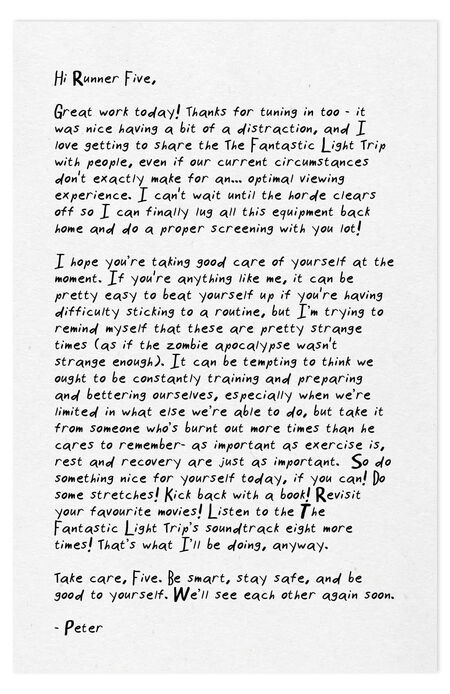 Hi Runner Five,
Great work today! Thanks for tuning in too - it
was nice having a bit of a distraction, and I
love getting to share the The Fantastic Light Trip
with people, even if our current circumstances
don't exactly make for an... optimal viewing
experience. I can't wait until the horde clears
off so I can finally lug all this equipment back
home and do a proper screening with you lot!
I hope you're taking good care of yourself at the
moment. If you're anything like me, it can be
pretty easy to beat yourself up if you're having
difficulty sticking to a routine, but I'm trying to
remind myself that these are pretty strange
times (as if the zombie apocalypse wasn't
strange enough). It can be tempting to think we
ought to be constantly training and preparing
and bettering ourselves, especially when we're
limited in what else we're able to do, but take it
from someone who's burnt out more times than he
cares to remember- as important as exercise is,
rest and recovery are just as important. So do
something nice for yourself today, if you can! Do
some stretches! Kick back with a book! Revisit
your favourite movies! Listen to the The
Fantastic Light Trip's soundtrack eight more
times! That's what I'll be doing, anyway.
Take care, Five. Be smart, stay safe, and be
good to yourself. We'll see each other again soon.
- Peter